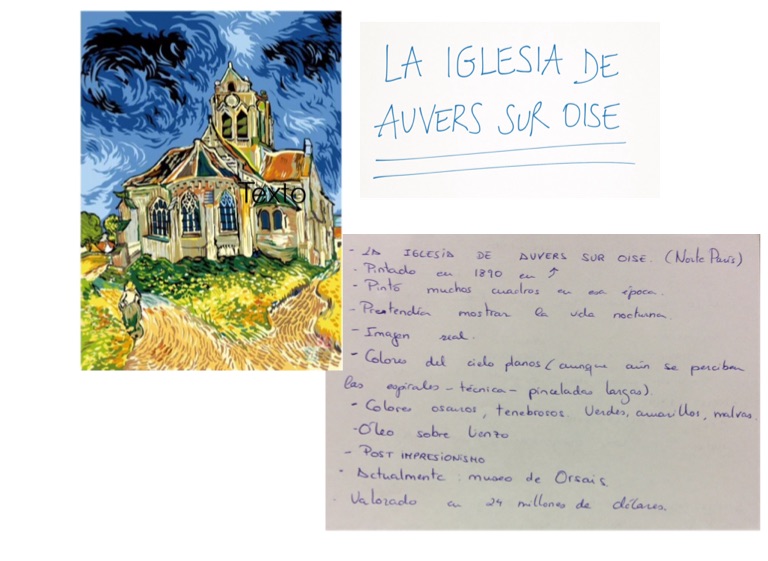 LA IGLESIA DE
AUVERS SUR OISE
Texto
- LA IGLESIA DE AUVERS SUR OISE. (Norte París)
- Pintado en 1890 en ↑
- Pintó muchos cuadros en esa época.
- Pretendía mostrar la vida nocturna.
- Imagen real.
- Colores del cielo planos (aunque aún se perciben
las espirales - técnica - pinceladas largas).
- Colores oscuros, tenebrosos. Verdes, amarillos, malvas.
- Óleo sobre lienzo
- POST IMPRESIONISMO
- Actualmente: museo de Orsais.
Valorado en 24 millones de dólares.